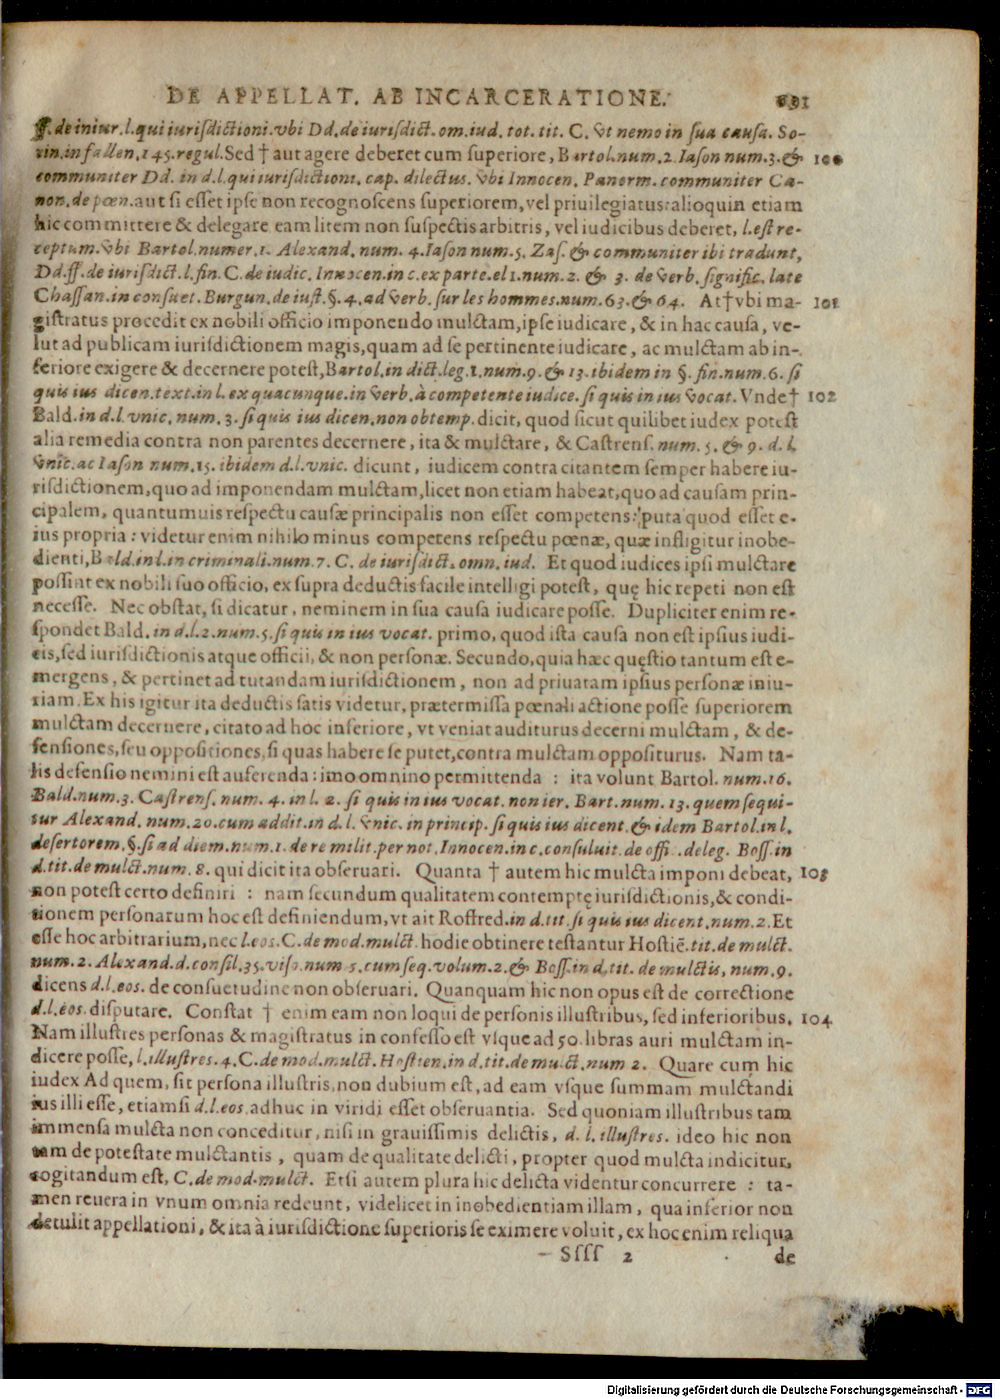 DE APPELLAT. AB INCARCERATIONE. 691
ff. de iniur. l. qui iurisdictioni. vbi Dd. de iurisdict. om. iud. tot. tit. C. vt nemo in sua causa. So-
cin. in fallen. 145. regul. Sed † aut agere deberet cum superiore, Bartol. num. 2. Iason num. 3. & 100
communiter Dd. in d. l. qui iurisdictioni. cap. dilectus. vbi Innocen. Panorm. communiter Ca-
non. de pœn. aut si esset ipse non recognoscens superiorem, vel priuilegiatus: alioquin etiam
hic committere & delegare eam litem non suspectis arbitris, vel iudicibus deberet, l. est re-
ceptum. vbi Bartol. numer. 1. Alexand. num. 4. Iason num. 5. Zas. & communiter ibi tradunt,
Dd. ff. de iurisdict. l. fin. C. de iudic. Innocen. in c. ex parte. el 1. num. 2. & 3. de verb. signific. late
Chassan. in consuet. Burgun. de iust. §. 4. ad verb. sur les hommes. num. 63. & 64. At † vbi ma- 101
gistratus procedit ex nobili officio imponendo mulctam, ipse iudicare, & in hac causa, ve-
lut ad publicam iurisdictionem magis, quam ad se pertinente iudicare, ac mulctam ab in-
feriore exigere & decernere potest, Bartol. in dict. leg. 1. num. 9. & 13. ibidem in §. fin. num. 6. si
quis ius dicen. text. in l. ex quacunque. in verb. à competente iudice. si quis in ius vocat. Vnde † 102
Bald. in d. l. vnic. num. 3. si quis ius dicen. non obtemp. dicit, quod sicut quilibet iudex potest
alia remedia contra non parentes decernere, ita & mulctare, & Castrens. num. 5. & 9. d. l.
vnic. ac Iason num. 15. ibidem d. l. vnic. dicunt, iudicem contra citantem semper habere iu-
risdictionem, quo ad imponendam mulctam, licet non etiam habeat, quo ad causam prin-
cipalem, quantumuis respectu causæ principalis non esset competens: puta quod esset e-
ius propria: videtur enim nihilominus competens respectu pœnæ, quæ infligitur inobe-
dienti, Bald. in l. in criminali. num. 7. C. de iurisdict. omn. iud. Et quod iudices ipsi mulctare
possint ex nobili suo officio, ex supra deductis facile intelligi potest, quę hic repeti non est
necesse. Nec obstat, si dicatur, neminem in sua causa iudicare posse. Dupliciter enim re-
spondet Bald. in d. l. 2. num. 5. si quis in ius vocat. primo, quod ista causa non est ipsius iudi-
cis, sed iurisdictionis atque officii, & non personæ. Secundo, quia hæc quęstio tantum est e-
mergens, & pertinet ad tutandam iurisdictionem, non ad priuatam ipsius personæ iniu-
riam. Ex his igitur ita deductis satis videtur, prætermissa pœnali actione posse superiorem
mulctam decernere, citato ad hoc inferiore, vt veniat auditurus decerni mulctam, & de-
fensiones, seu oppositiones, si quas habere se putet, contra mulctam oppositurus. Nam ta-
lis defensio nemini est auferenda: imo omnino permittenda : ita volunt Bartol. num. 16.
Bald. num. 3. Castrens. num. 4. in l. 2. si quis in ius vocat. non ier. Bart. num. 13. quem sequi-
tur Alexand. num. 20. cum addit. in d. l. vnic. in princip. si quis ius dicent. & idem Bartol. in l.
desertorem. §. si ad diem. num. 1. de re milit. per not. Innocen. in c. consuluit. de offi. deleg. Boss. in
d. tit. de mulct. num. 8. qui dicit ita obseruari. Quanta † autem hic mulcta imponi debeat, 103
non potest certo definiri : nam secundum qualitatem contemptę iurisdictionis, & condi-
tionem personarum hoc est definiendum, vt ait Roffred. in d. tit. si quis ius dicent. num. 2. Et
esse hoc arbitrarium, nec l. eos. C. de mod. mulct. hodie obtinere testantur Hostiē. tit. de mulct.
num. 2. Alexand. d. consil. 35. viso. num 5. cum seq. volum. 2. & Boss. in d. tit. de mulctis, num. 9.
dicens d. l. eos. de consuetudine non obseruari. Quanquam hic non opus est de correctione
d. l. eos. disputare. Constat † enim eam non loqui de personis illustribus, sed inferioribus. 104
Nam illustres personas & magistratus in confesso est vsque ad 50. libras auri mulctam in-
dicere posse, l. illustres. 4. C. de mod. mulct. Hostien. in d. tit. de mulct. num 2. Quare cum hic
iudex Ad quem, sit persona illustris, non dubium est, ad eam vsque summam mulctandi
ius illi esse, etiamsi d. l. eos. adhuc in viridi esset obseruantia. Sed quoniam illustribus tam
immensa mulcta non conceditur, nisi in grauissimis delictis, d. l. illustres. ideo hic non
tam de potestate mulctantis, quam de qualitate delicti, propter quod mulcta indicitur,
cogitandum est, C. de mod. mulct. Etsi autem plura hic delicta videntur concurrere : ta-
men reuera in vnum omnia redeunt, videlicet in inobedientiam illam, qua inferior non
detulit appellationi, & ita à iurisdictione superioris se eximere voluit, ex hoc enim reliqua
Ssss 2 de
Digitalisierung gefördert durch die Deutsche Forschungsgemeinschaft - DFG